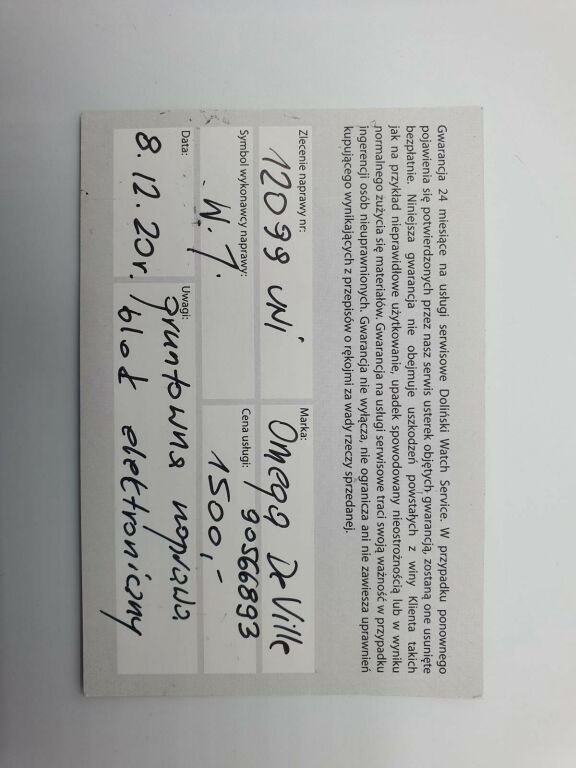 Gwarancja 24 miesiące na usługi serwisowe Doliński Watch Service. W przypadku ponownego
pojawienia się potwierdzonych przez nasz serwis usterek objętych gwarancją, zostaną one usunięte
bezpłatnie. Niniejsza gwarancja nie obejmuje uszkodzeń powstałych z winy Klienta takich
jak na przykład nieprawidłowe użytkowanie, upadek spowodowany nieostrożnością lub w wyniku
normalnego zużycia się materiałów. Gwarancja na usługi serwisowe traci swoją ważność w przypadku
ingerencji osób nieuprawnionych. Gwarancja nie wyłącza, nie ogranicza ani nie zawiesza uprawnień
kupującego wynikających z przepisów o rękojmi za wady rzeczy sprzedanej.
Zlecenie naprawy nr:
12099 UNI
Marka:
Omega De Ville
90566893
Symbol wykonawcy naprawy:
W.J.
Cena usługi:
1500,-
Data:
8.12.20r.
Uwagi:
gruntowna naprawa
blok elektroniczny